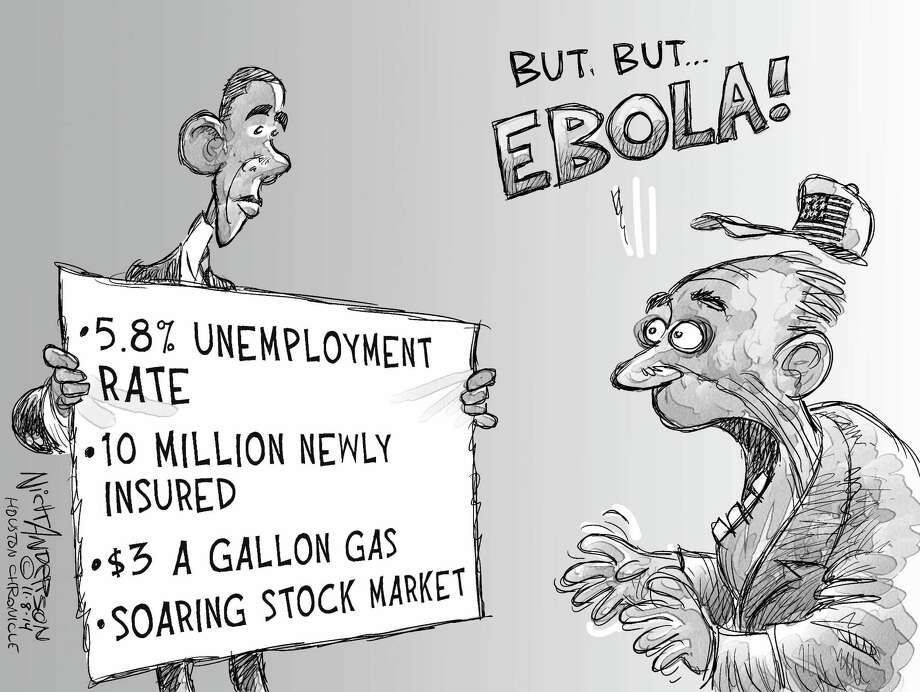 BUT, BUT...
EBOLA!
• 5.8% UNEMPLOYMENT
RATE
• 10 MILLION NEWLY
INSURED
• $3 A GALLON GAS
• SOARING STOCK MARKET
NICK ANDERSON
©11.8.14
HOUSTON CHRONICLE